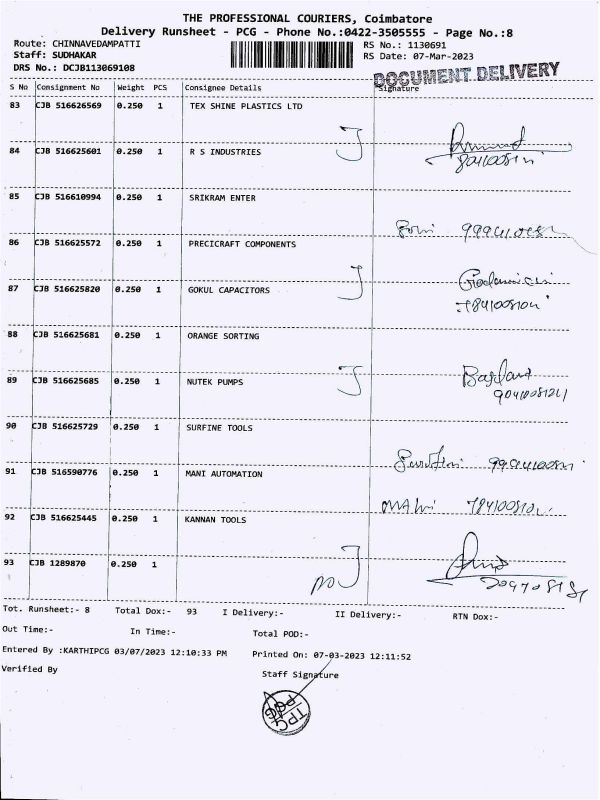 THE PROFESSIONAL COURIERS, Coimbatore
Delivery Runsheet - PCG - Phone No.:0422-3505555 - Page No.:8
Route: CHINNAVEDAMPATTI RS No.: 1130691
Staff: SUDHAKAR RS Date: 07-Mar-2023
DRS No.: DCJB113069108
DOCUMENT DELIVERY
S No Consignment No Weight PCS Consignee Details Signature
83 CJB 516626569 0.250 1 TEX SHINE PLASTICS LTD
84 CJB 516625601 0.250 1 R S INDUSTRIES
85 CJB 516610994 0.250 1 SRIKRAM ENTER
86 CJB 516625572 0.250 1 PRECICRAFT COMPONENTS
87 CJB 516625820 0.250 1 GOKUL CAPACITORS
88 CJB 516625681 0.250 1 ORANGE SORTING
89 CJB 516625685 0.250 1 NUTEK PUMPS
90 CJB 516625729 0.250 1 SURFINE TOOLS
91 CJB 516590776 0.250 1 MANI AUTOMATION
92 CJB 516625445 0.250 1 KANNAN TOOLS
93 CJB 1289870 0.250 1
Tot. Runsheet:- 8 Total Dox:- 93 I Delivery:- II Delivery:- RTN Dox:-
Out Time:- In Time:- Total POD:-
Entered By :KARTHIPCG 03/07/2023 12:10:33 PM Printed On: 07-03-2023 12:11:52
Verified By Staff Signature
TPC
PCG